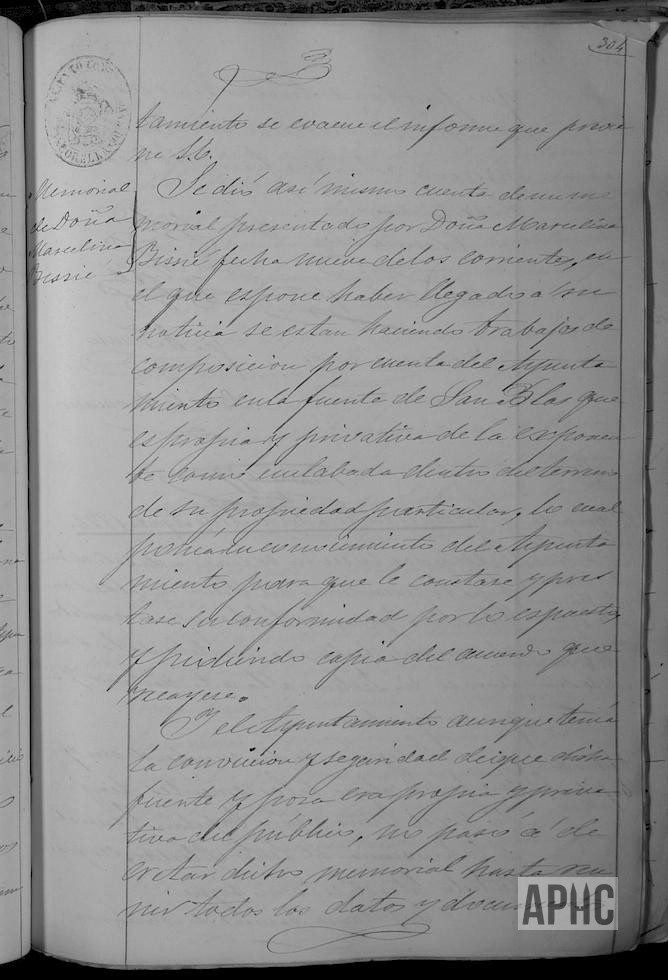 304
tamiento se evacue el informe que previe
ne S.S.
Memorial
de Doña
Marcelina
Bissié
Se dió asi mismo cuenta de un me
morial presentado por Doña Marcelina
Bissié fecha nueve de los corrientes, en
el que espone haber llegado á su
noticia se estan haciendo trabajos de
composicion por cuenta del Ayunta
miento en la fuente de San Blas que
es propia y privativa de la exponen
te como enclabada dentro del terreno
de su propiedad particular, lo cual
ponia en conocimiento del Ayunta
miento para que le constase y pres
tase su conformidad por lo espuesto,
y pidiendo copia del acuerdo que
recayere.
Y el Ayuntamiento aunque tenia
la conviccion y seguridad de que dicha
fuente y poza era propia y priva
tiva del público, no pasó á de
cretar dicho memorial hasta reu
nir todos los datos y documentos
APHC